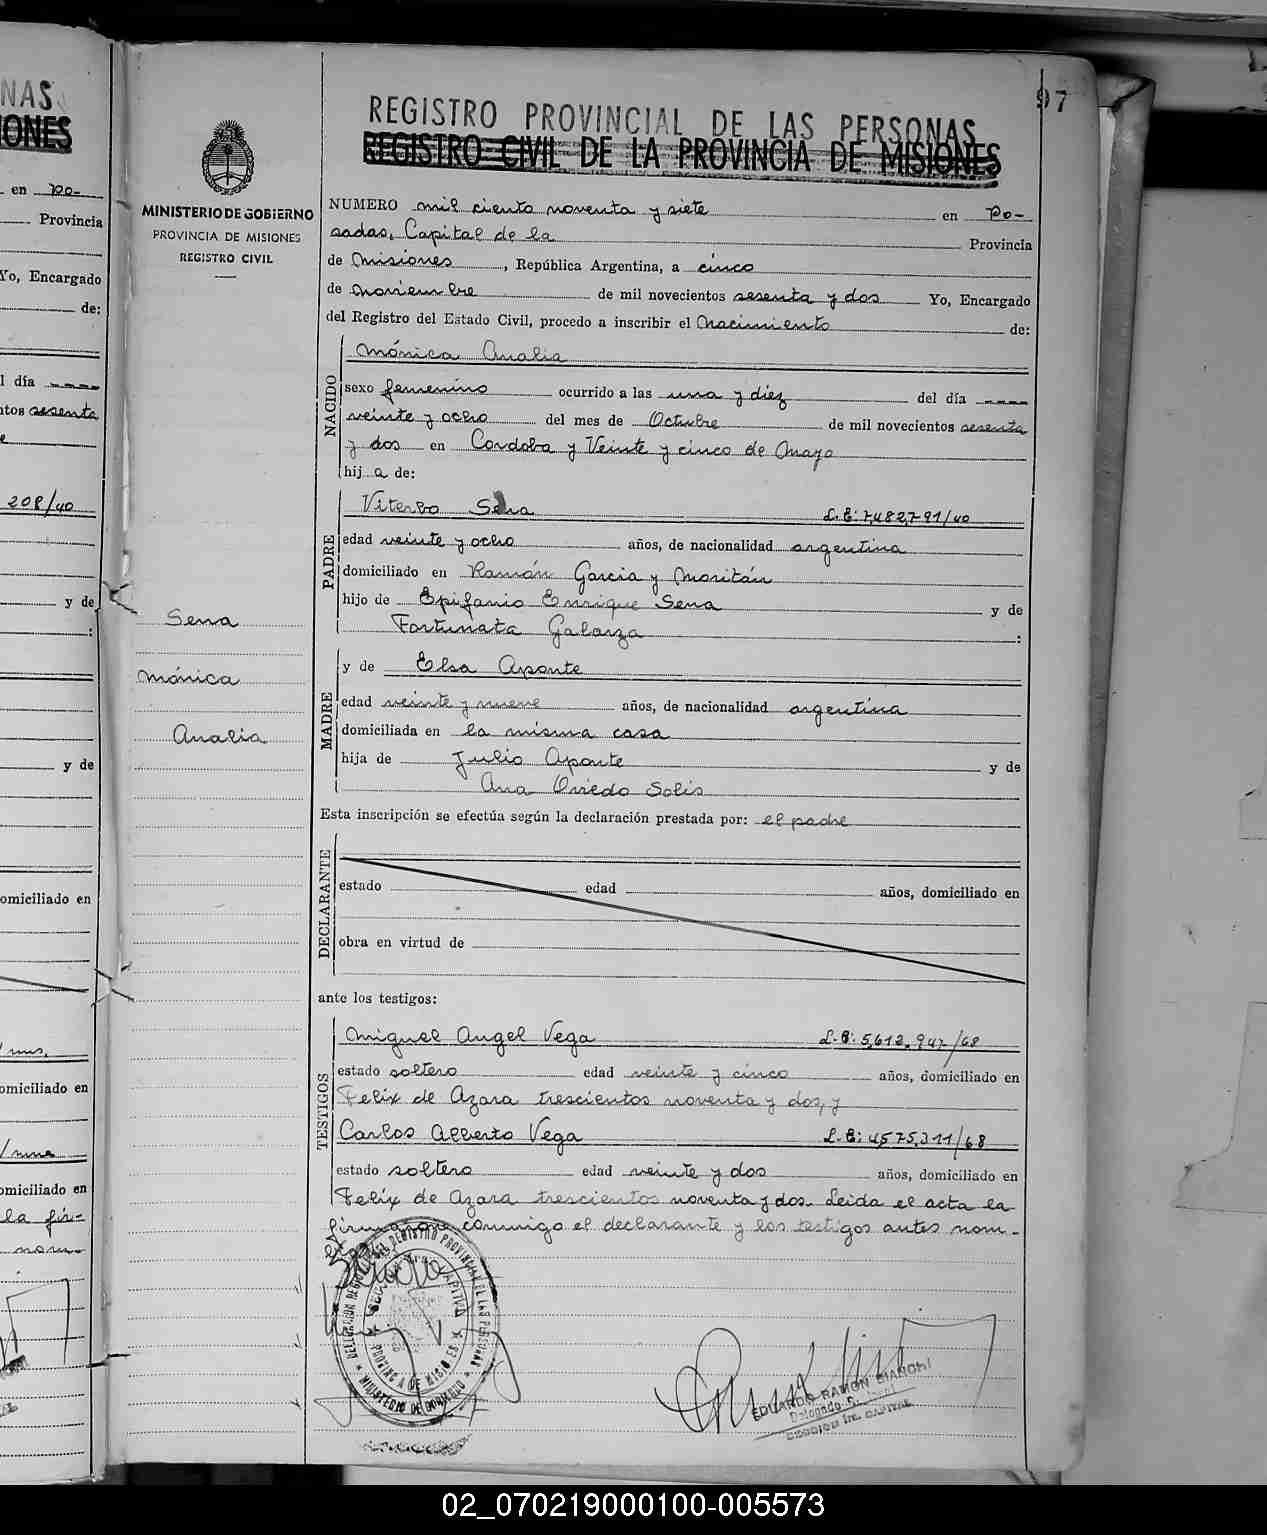 NAS
IONES
en Po-
Provincia
Yo, Encargado
de:
l día
ntos sesenta
208/40
y de
:
y de
omiciliado en
omiciliado en
omiciliado en
la fir-
nom-
97
REGISTRO PROVINCIAL DE LAS PERSONAS
REGISTRO CIVIL DE LA PROVINCIA DE MISIONES
MINISTERIO DE GOBIERNO
PROVINCIA DE MISIONES
REGISTRO CIVIL
Sena
Mónica
Analia
NUMERO mil ciento noventa y siete en Po-
sadas, Capital de la Provincia
de Misiones, República Argentina, a cinco
de noviembre de mil novecientos sesenta y dos Yo, Encargado
del Registro del Estado Civil, procedo a inscribir el Nacimiento de:
NACIDO
Mónica Analia
sexo femenino ocurrido a las una y diez del día ----
veinte y ocho del mes de Octubre de mil novecientos sesenta
y dos en Cordoba y Veinte y cinco de Mayo
hij a de:
PADRE
Viterbo Sena L.E: 7,482,791/40
edad veinte y ocho años, de nacionalidad argentina
domiciliado en Ramón Garcia y Moritán
hijo de Epifanio Enrique Sena y de
Fortunata Galarza :
MADRE
y de Elsa Aponte
edad veinte y nueve años, de nacionalidad argentina
domiciliada en la misma casa
hija de Julio Aponte y de
Ana Oviedo Solis
Esta inscripción se efectúa según la declaración prestada por: el padre
DECLARANTE
estado edad años, domiciliado en
obra en virtud de
ante los testigos:
TESTIGOS
Miguel Angel Vega L.E: 5,612,947/68
estado soltero edad veinte y cinco años, domiciliado en
Felix de Azara trescientos noventa y dos, y
Carlos Alberto Vega L.E: 4,575,311/68
estado soltero edad veinte y dos años, domiciliado en
Felix de Azara trescientos noventa y dos. Leida el acta la
firmaron conmigo el declarante y los testigos antes nom-
DEL REGISTRO PROVINCIAL DE LAS PERSONAS
PROVINCIA DE MISIONES
MINISTERIO DE GOBIERNO
EDUARDO RAMON BIANCHI
Delegado
SECCION 1ra. CAPITAL
02_070219000100-005573